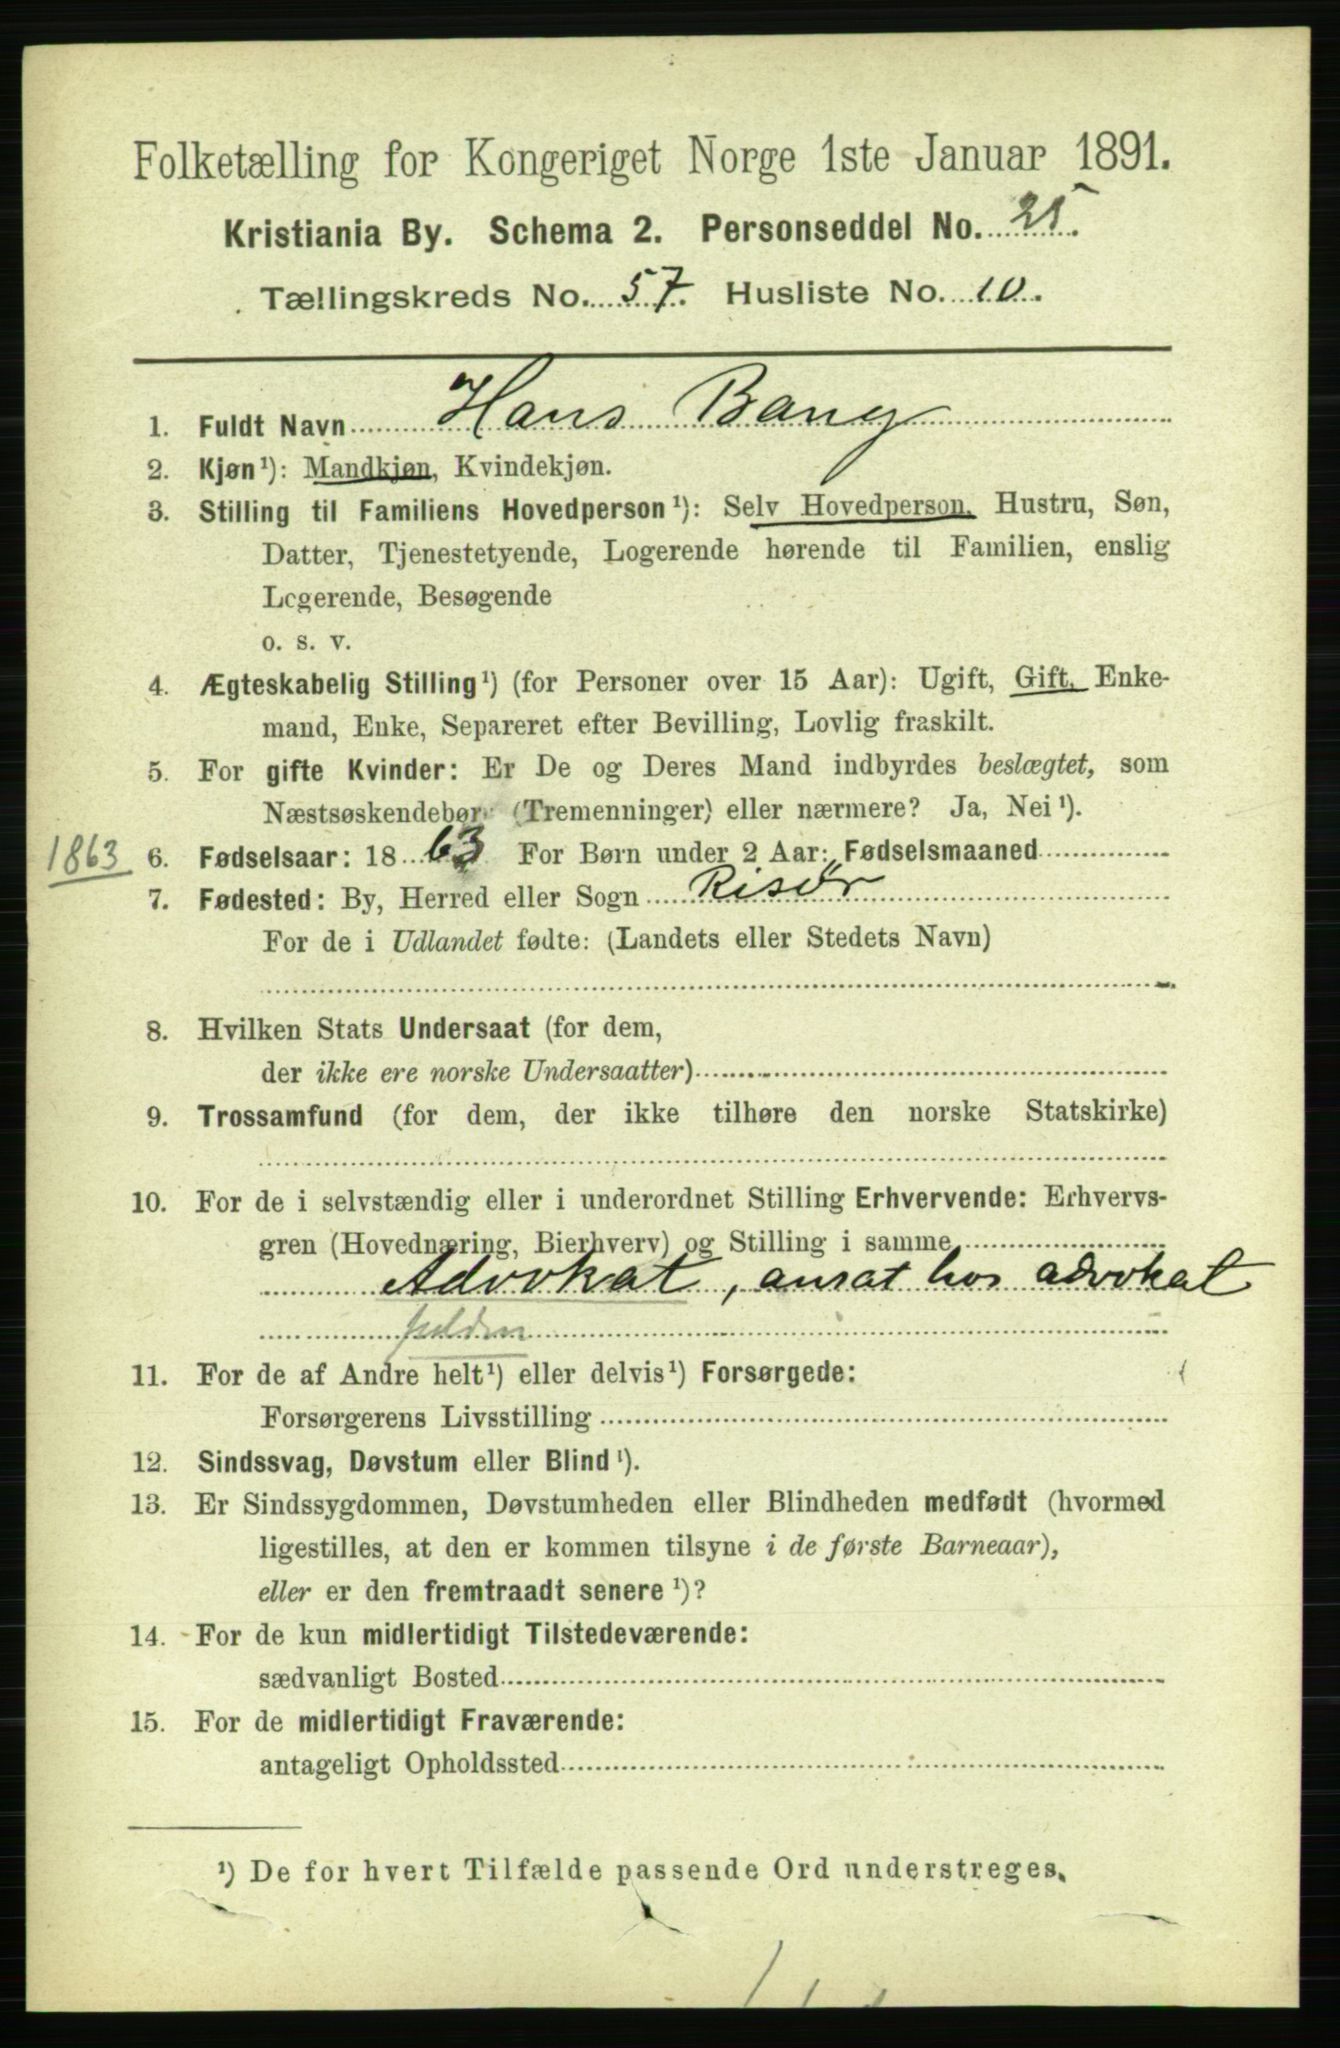 Folketælling for Kongeriget Norge 1ste Januar 1891.
Kristiania By. Schema 2. Personseddel No. 25.
Tællingskreds No. 57. Husliste No. 10.
1. Fuldt Navn Hans Bang
2. Kjøn¹): Mandkjøn, Kvindekjøn.
3. Stilling til Familiens Hovedperson¹): Selv Hovedperson, Hustru, Søn,
Datter, Tjenestetyende, Logerende hørende til Familien, enslig
Logerende, Besøgende
o. s. v.
4. Ægteskabelig Stilling¹) (for Personer over 15 Aar): Ugift, Gift, Enke-
mand, Enke, Separeret efter Bevilling, Lovlig fraskilt.
5. For gifte Kvinder: Er De og Deres Mand indbyrdes beslægtet, som
Næstsøskendebørn (Tremenninger) eller nærmere? Ja, Nei¹).
1863 6. Fødselsaar: 1863 For Børn under 2 Aar: Fødselsmaaned
7. Fødested: By, Herred eller Sogn Risør
For de i Udlandet fødte: (Landets eller Stedets Navn)
8. Hvilken Stats Undersaat (for dem,
der ikke ere norske Undersaatter)
9. Trossamfund (for dem, der ikke tilhøre den norske Statskirke)
10. For de i selvstændig eller i underordnet Stilling Erhvervende: Erhvervs-
gren (Hovednæring, Bierhverv) og Stilling i samme
Advokat, ansat hos advokat
11. For de af Andre helt¹) eller delvis¹) Forsørgede:
Forsørgerens Livsstilling
12. Sindssvag, Døvstum eller Blind¹).
13. Er Sindssygdommen, Døvstumheden eller Blindheden medfødt (hvormed
ligestilles, at den er kommen tilsyne i de første Barneaar),
eller er den fremtraadt senere¹)?
14. For de kun midlertidigt Tilstedeværende:
sædvanligt Bosted
15. For de midlertidigt Fraværende:
antageligt Opholdssted
¹) De for hvert Tilfælde passende Ord understreges.